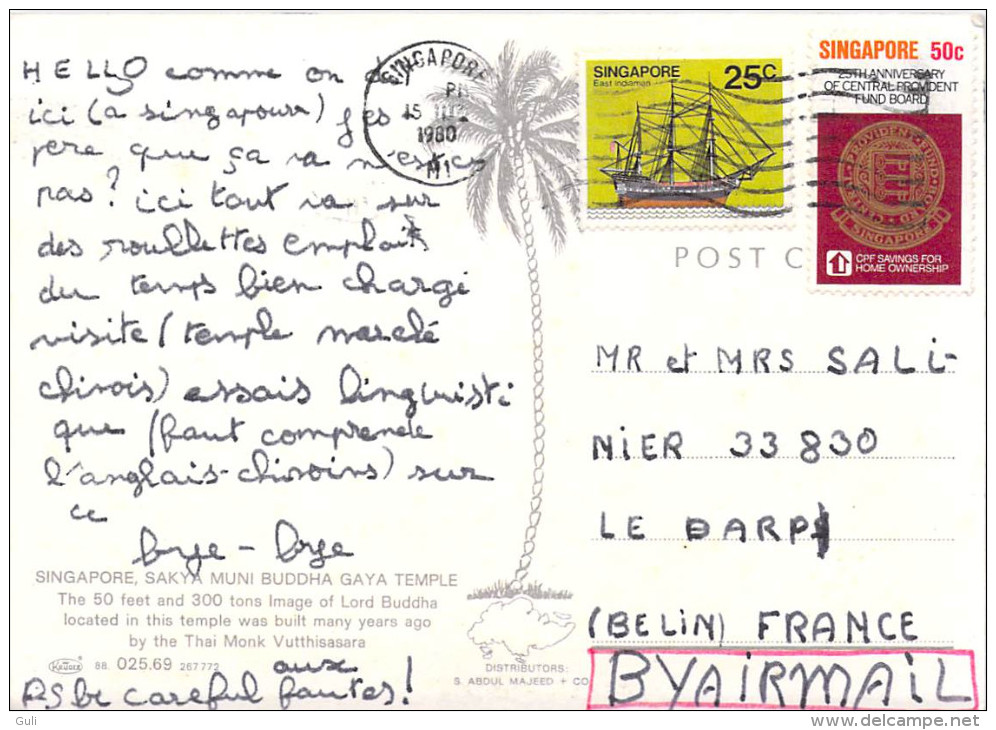 HELLO comme on d
ici (a singapour) j'es
père que ça va n'est ce
pas? ici tout va sur
des roullettes emploi
du temps bien chargé
visite (temple marché
chinois) essais linguisti
que (faut comprende
l'anglais-chinoins) sur
ce
bye-bye
SINGAPORE, SAKYA MUNI BUDDHA GAYA TEMPLE
The 50 feet and 300 tons Image of Lord Buddha
located in this temple was built many years ago
by the Thai Monk Vutthisasara
KRÜGER 88. 025.69 267 772
aux
PS be careful fautes!
DISTRIBUTORS:
S. ABDUL MAJEED + CO
SINGAPORE
PM
15
1980
SINGAPORE 25c
East Indiaman
SINGAPORE 50c
25TH ANNIVERSARY
OF CENTRAL PROVIDENT
FUND BOARD
CENTRAL PROVIDENT FUND BOARD
SINGAPORE
CPF SAVINGS FOR
HOME OWNERSHIP
POST C
MR et MRS SALI-
NIER 33 830
LE BARP
(BELIN) FRANCE
BY AIR MAIL
Guli
www.delcampe.net